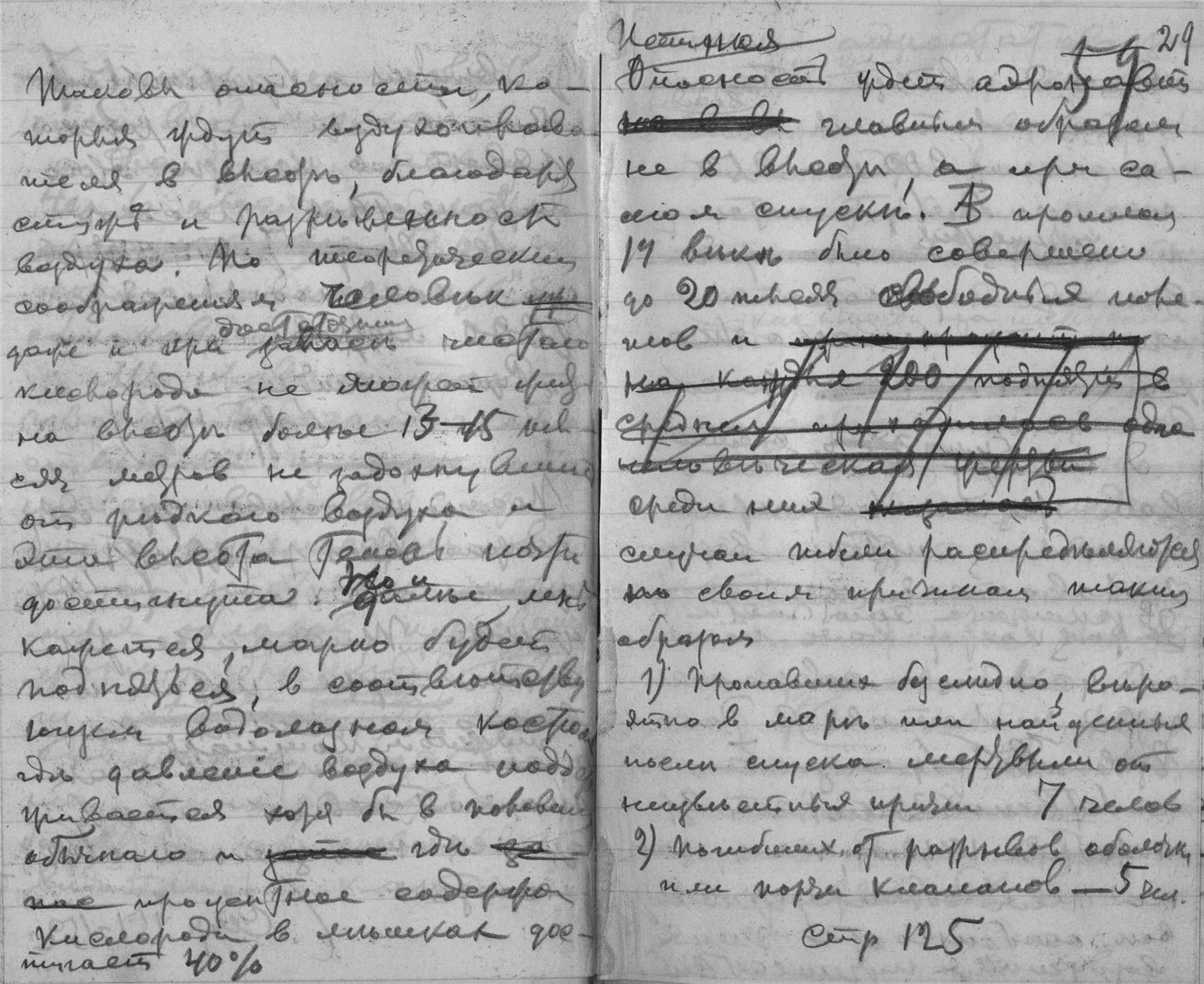 Таковы опасности, ко-
торыя ждут воздухоплава
теля в высоте, благодаря
стуже и разреженности
воздуха. По теоретическим
соображениям человек
даже и при достаточном запасе чистаго
кислорода не может жить
на высоте более 13-15 кил
сяч метров не задохнувшись
от редкого воздуха и
эта высота теперь почти
достигнута. Но и далее, мне
кажется, можно будет
подняться, в соответству
ющем водолазном костюме
где давление воздуха поддер
живается хотя бы в половину
обычнаго и где
процентное содержа
кислорода в мешках дос-
тигает 40%
29
59
Истинная
Опасность ждет аэронавта
главным образом
не в высоте, а при са-
мом спуске. В прошлом
19 веке было совершено
до 20 тысяч свободных поле
тов и
на каждыя 200 поднятий в
среднем приходилась одна
человеческая жертва
среди них
случаи гибели распределяются
по своим причинам таким
образом
1) Пропавших безследно, веро-
ятно в море или найденных
после спуска мертвыми от
неизвестных причин 7 челов
2) Погибших от разрывов оболочки
или порчи клапанов — 5 чел.
Стр 125